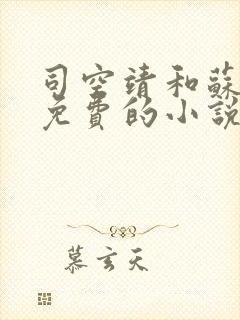 司空靖和蘇
免費的小說
慕玄天